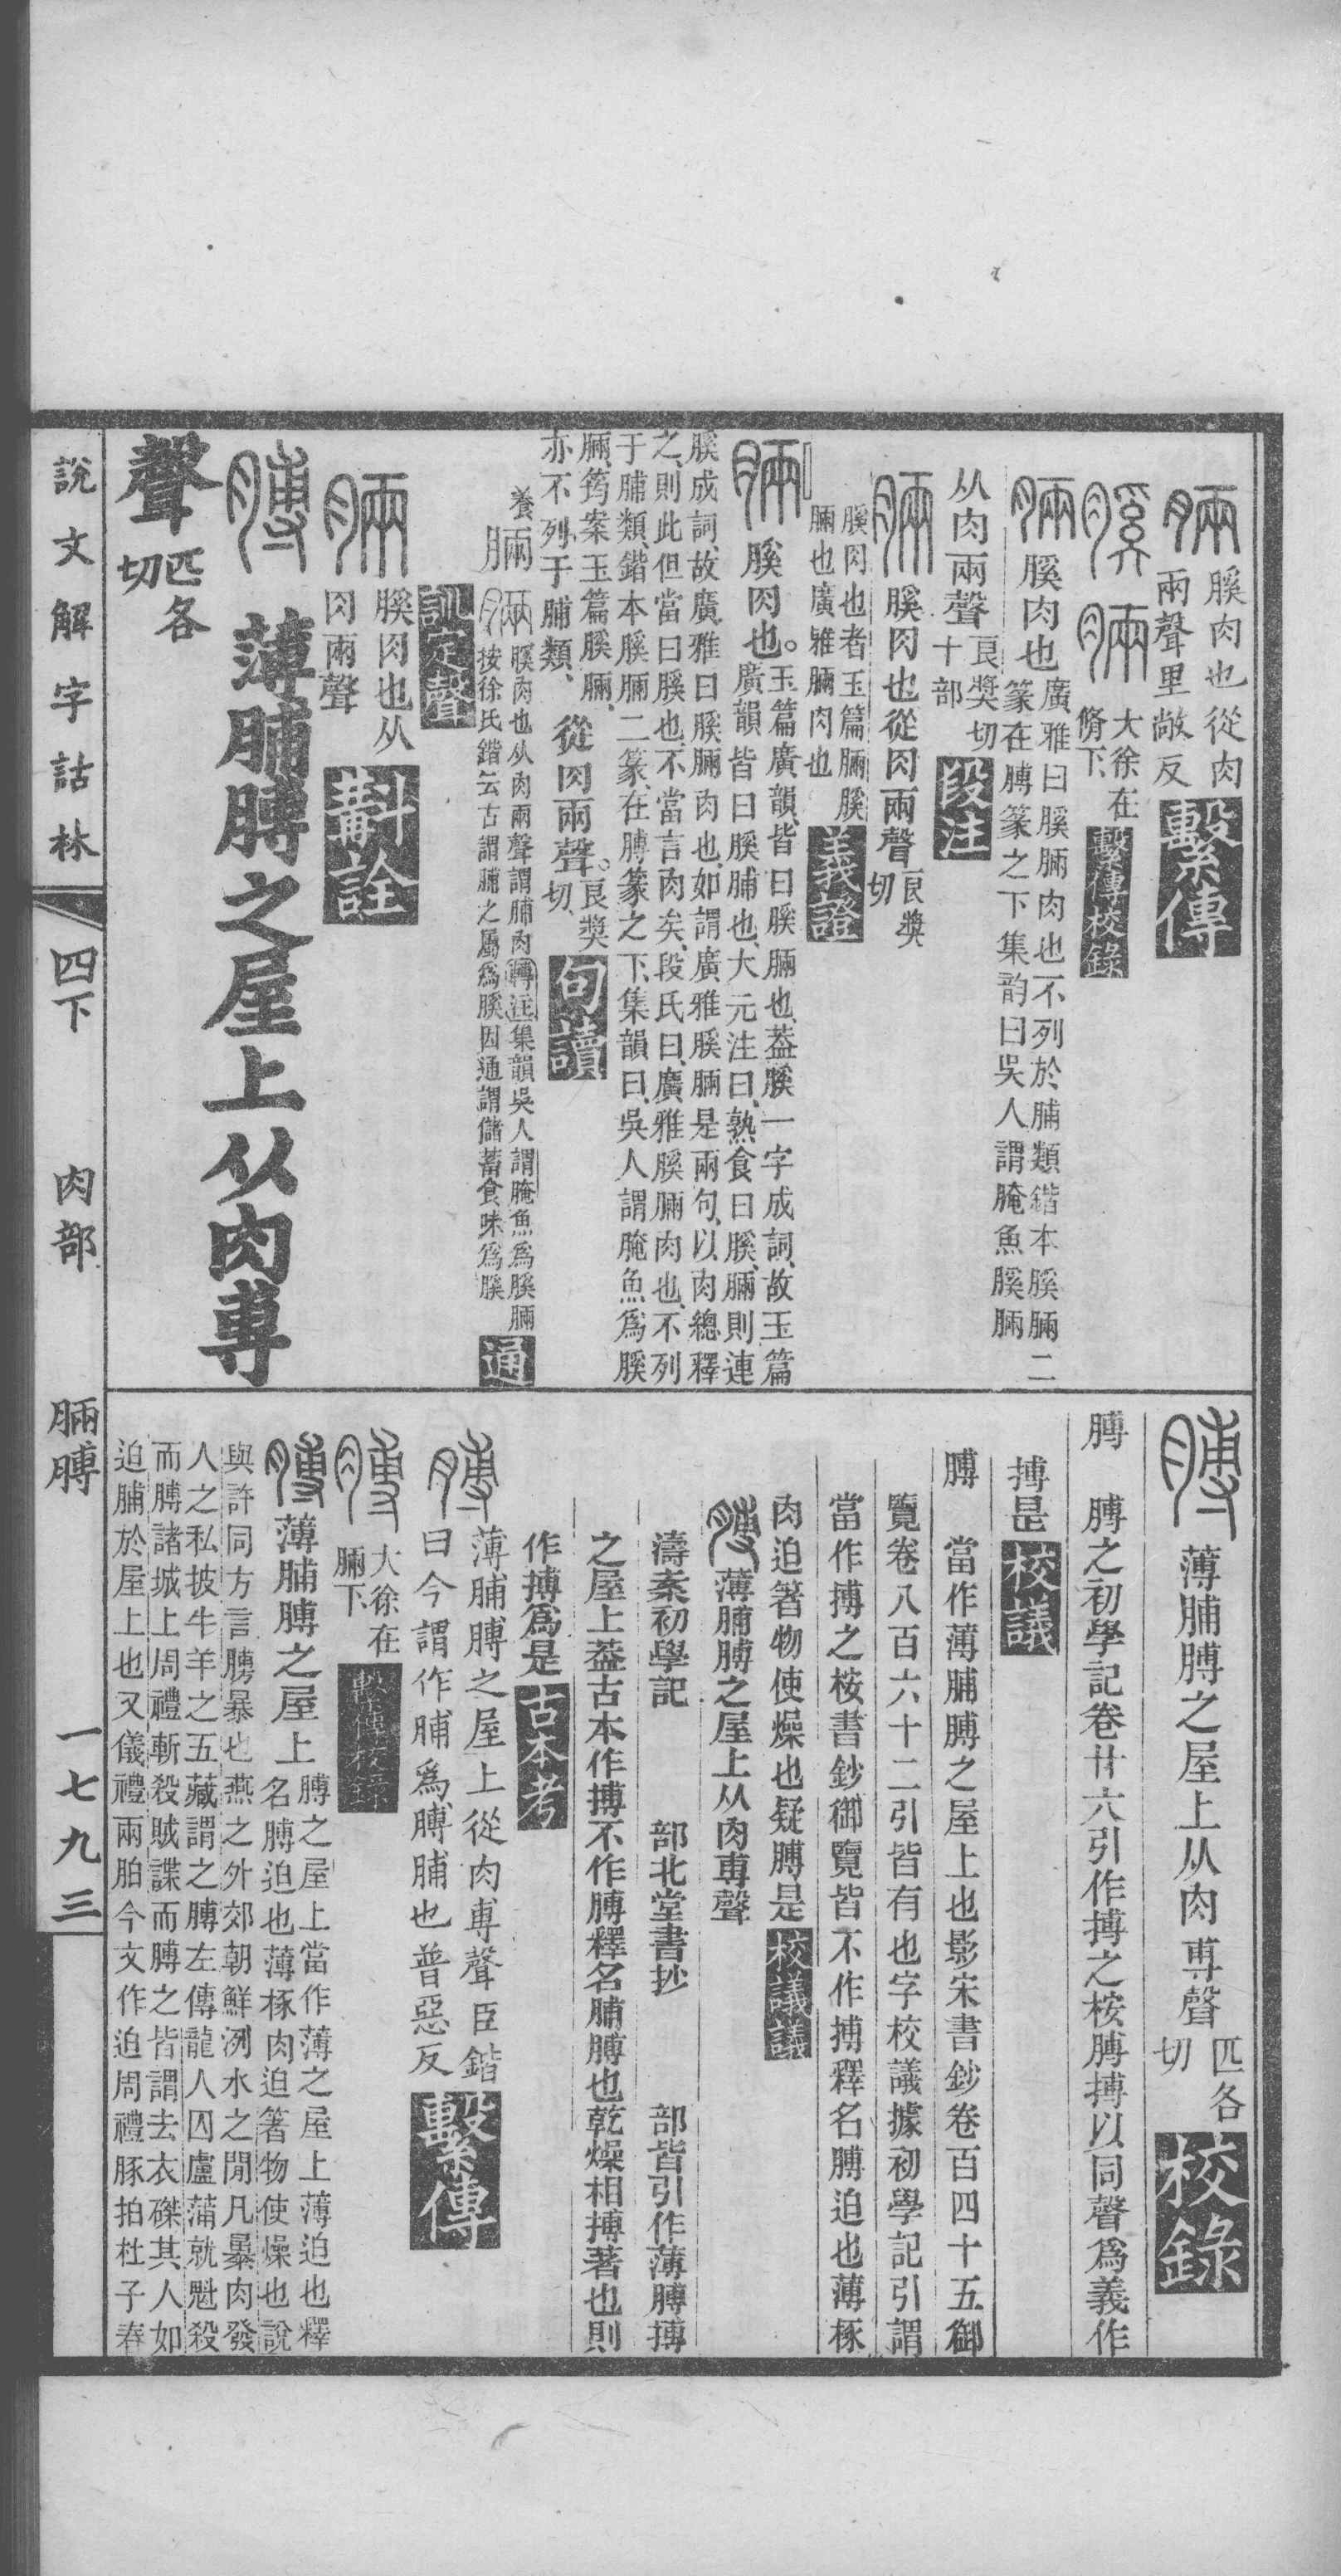 脼 膎肉也從肉
兩聲里敞反 繫傳
膎脼 大徐在
脩下 繫傳校錄
脼 膎肉也 廣雅曰膎脼肉也不列於脯類鍇本膎脼二
篆在膊篆之下集韵曰吳人謂腌魚膎脼
从肉兩聲 良獎切
十部 段注
脼 膎肉也從肉兩聲 良獎
切
膎肉也者玉篇脼膎
脼也廣雅脼肉也 義證
脼 膎肉也。 玉篇廣韻皆曰膎脼也、葢膎一字成詞、故玉篇
廣韻皆曰膎脯也、大元注曰、熟食曰膎、脼則連
膎成詞、故廣雅曰膎脼肉也、如謂廣雅膎脼是兩句、以肉總釋
之、則此但當曰膎也、不當言肉矣、段氏曰、廣雅膎脼肉也、不列
于脯類、鍇本膎脼二篆、在膊篆之下、集韻曰、吳人謂腌魚爲膎
脼、筠案玉篇膎脼、
亦不列于脯類、 從肉兩聲。 良獎
切、 句讀
養 脼 脼 膎肉也从肉兩聲謂脯肉 轉注 集韻吳人謂腌魚爲膎脼
按徐氏鍇云古謂脯之屬爲膎因通謂儲蓄食味爲膎 通
訓定聲
脼 膎肉也从
肉兩聲 斠詮
膊 薄脯膊之屋上从肉尃
聲 匹各
切
膊 薄脯膊之屋上从肉尃聲 匹各
切 校錄
膊 膊之初學記卷廿六引作搏之桉膊搏以同聲爲義作
搏是 校議
膊 當作薄脯膊之屋上也影宋書鈔卷百四十五御
覽卷八百六十二引皆有也字校議據初學記引謂
當作搏之桉書鈔御覽皆不作搏釋名膊迫也薄椓
肉迫箸物使燥也疑膊是 校議議
膊 薄脯膊之屋上从肉尃聲
濤案初學記 部北堂書抄 部皆引作薄膊搏
之屋上葢古本作搏不作膊釋名脯膊也乾燥相搏著也則
作搏爲是 古本考
膊 薄脯膊之屋上從肉尃聲臣鍇
曰今謂作脯爲膊脯也普惡反 繫傳
膊 大徐在
脼下 繫傳校錄
膊 薄脯膊之屋上 膊之屋上當作薄之屋上薄迫也釋
名膊迫也薄椓肉迫箸物使燥也說
與許同方言膊暴也燕之外郊朝鮮洌水之閒凡暴肉發
人之私披牛羊之五藏謂之膊左傳龍人囚盧蒲就魁殺
而膊諸城上周禮斬殺賊諜而膊之皆謂去衣磔其人如
迫脯於屋上也又儀禮兩胉今文作迫周禮豚拍杜子春
說文解字詁林 四下 肉部 脼膊 一七九三